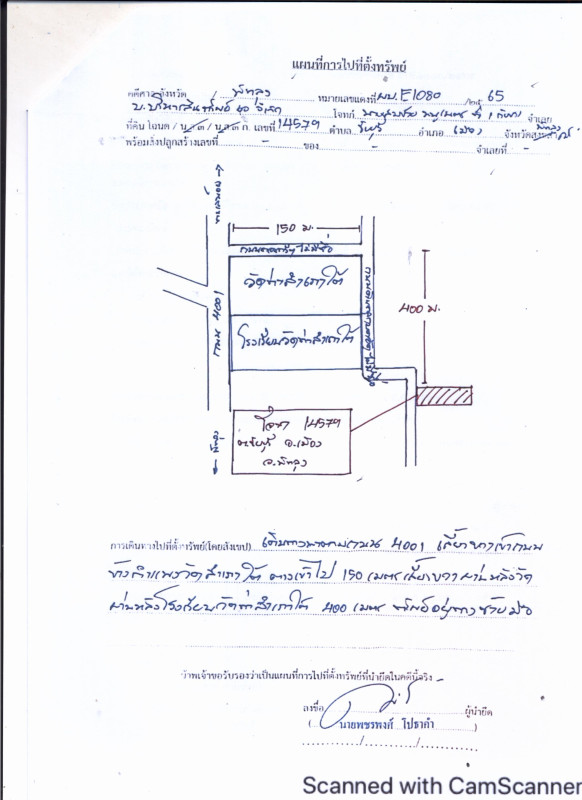 แผนที่การไปที่ตั้งทรัพย์
คดีศาลจังหวัด พัทลุง หมายเลขแดงที่ ผบ.E1080 /25 65
โจทก์ จำเลย
ที่ดิน โฉนด / น.ส.๓ / น.ส.๓ ก. เลขที่ 14579 ตำบล ชัยบุรี อำเภอ เมือง จังหวัด พัทลุง
พร้อมสิ่งปลูกสร้างเลขที่ - ของ - จำเลยที่ -
150 ม.
วัดท่าสำเภาใต้
ถนน 4001
400 ม.
โรงเรียนวัดท่าสำเภาใต้
โฉนด 14579
ต.ชัยบุรี อ.เมือง
จ.พัทลุง
การเดินทางไปที่ตั้งทรัพย์(โดยสังเขป) เดินทางมาตามถนน 4001 เลี้ยวขวาเข้าถนน
ข้างกำแพงวัดท่าสำเภาใต้ ตรงเข้าไป 150 เมตร เลี้ยวขวา ผ่านหลังวัด
ผ่านหลังโรงเรียนวัดท่าสำเภาใต้ 400 เมตร ทรัพย์อยู่ทางซ้ายมือ
ข้าพเจ้าขอรับรองว่าเป็นแผนที่การไปที่ตั้งทรัพย์ที่นำยึดในคดีนี้จริง
ลงชื่อ ผู้นำยึด
( นายพชรพงศ์ โปธาคำ )
/ /
Scanned with CamScanner